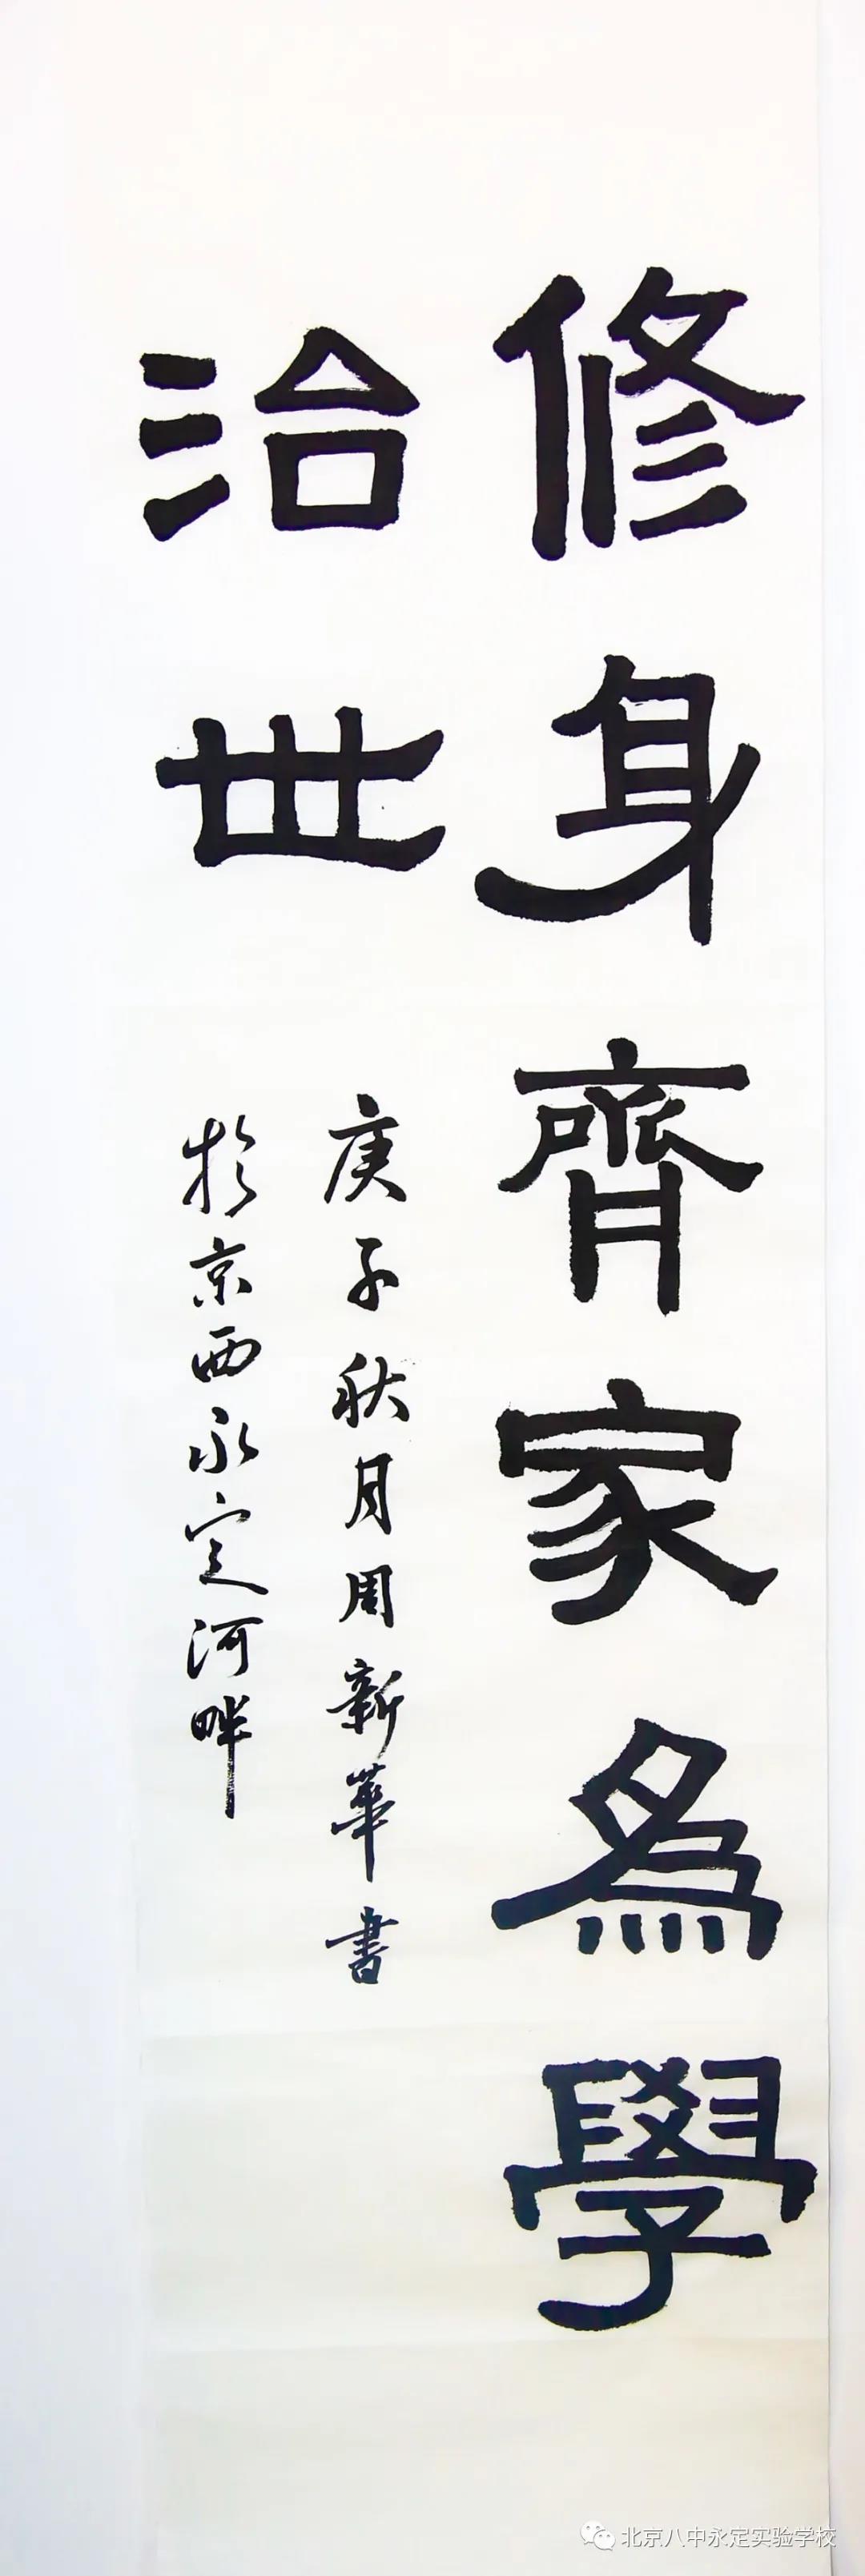 修身齊家為學
治世
庚子秋月周新華書
於京西永定河畔
北京八中永定实验学校